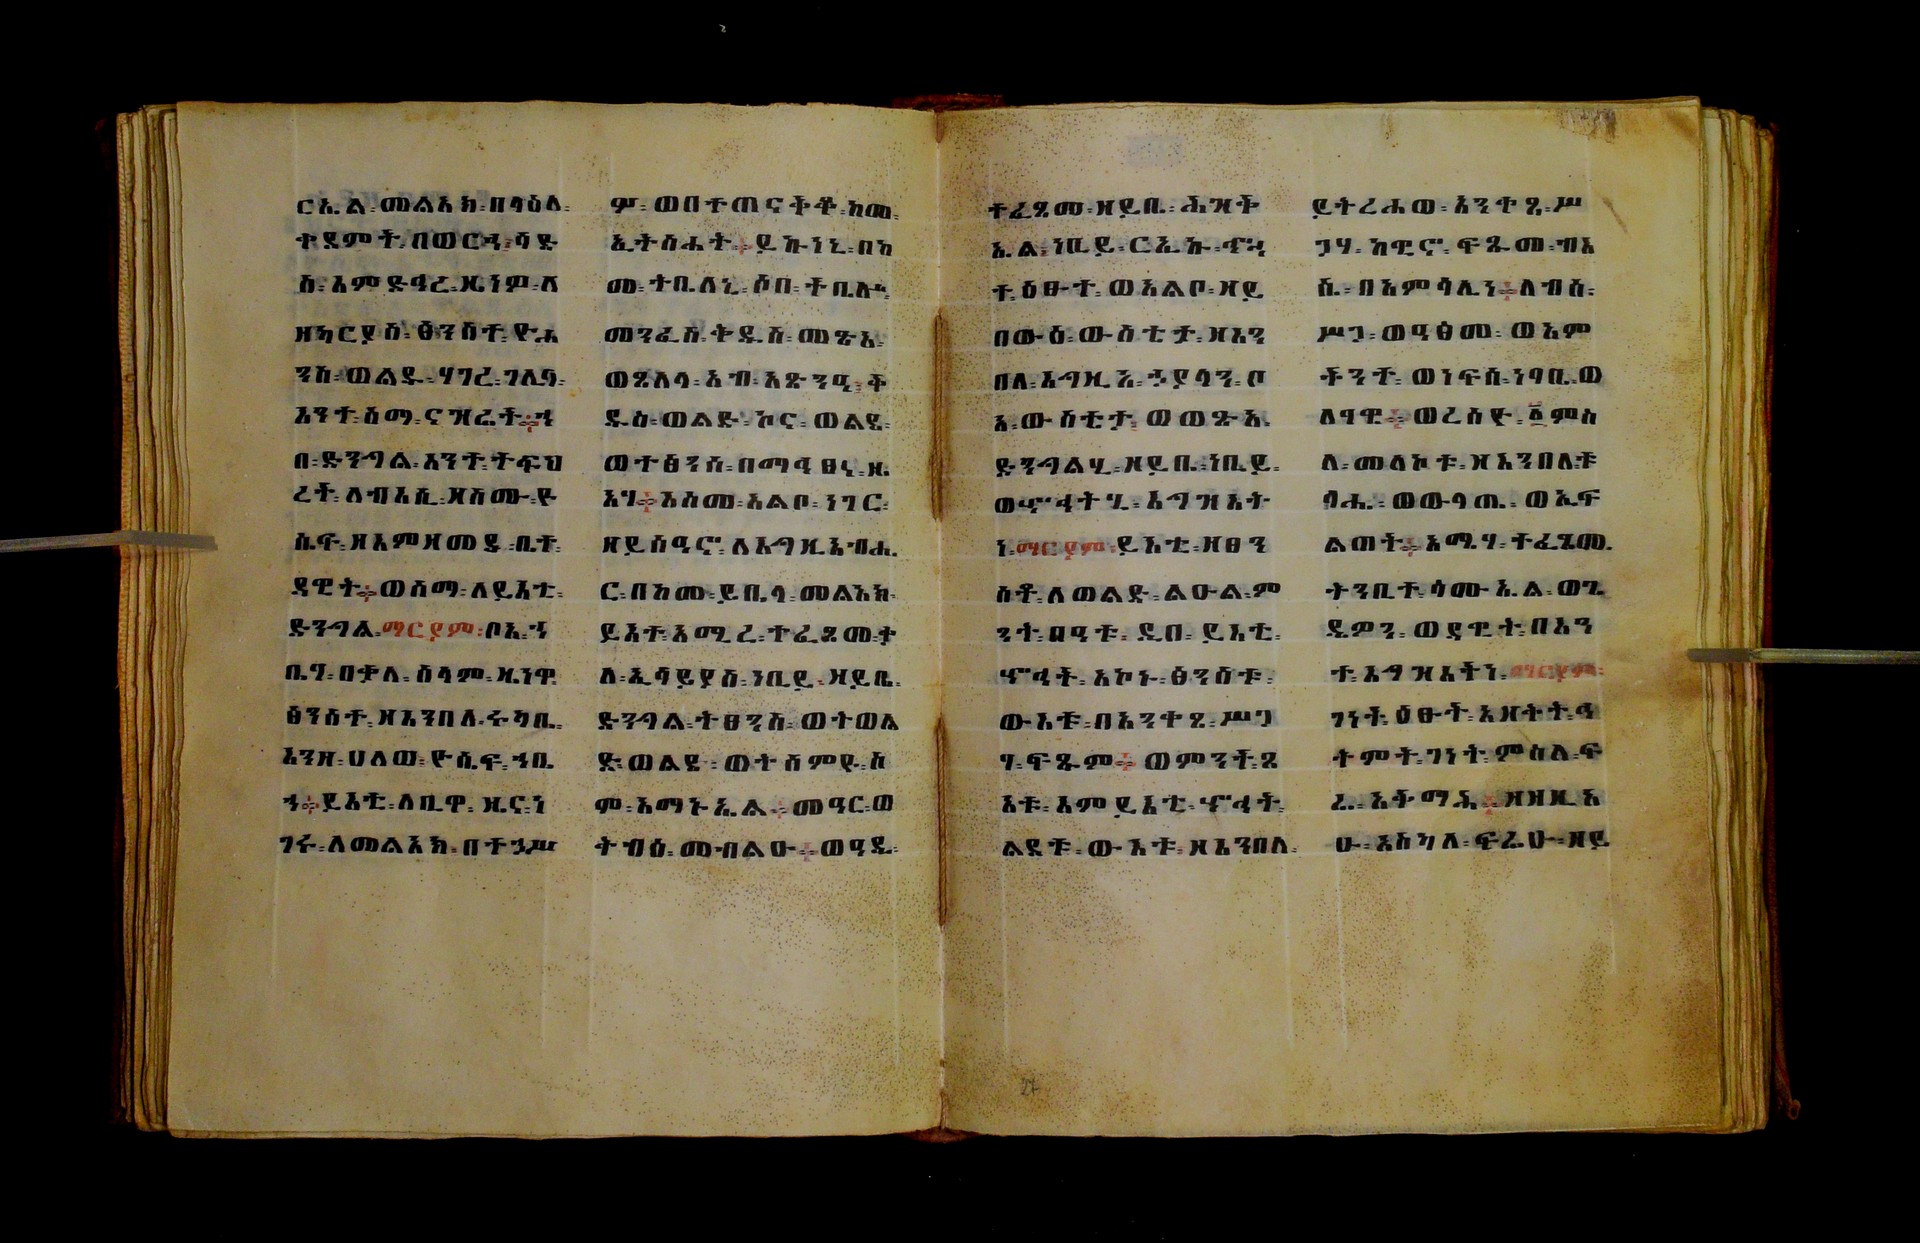 ርኢል፡መልአክ፡በሳዕለ፡
ተደምት፡በወርኅ፡ሳድ
ስ፡እምድኅረ፡ዜነዎ፡ለ
ዘካርያስ፡ፅንስተ፡ዮሐ
ንስ፡ወልዱ፡ሃገረ፡ገሊላ፡
እንተ፡ስማ፡ናዝሬት፨ኀ
በ፡ድንግል፡እንተ፡ትፍኅ
ረት፡ለብእሲ፡ዘስሙ፡ዮ
ሴፍ፡ዘእምዘመደ፡ቤተ፡
ዳዊት፨ወስማ፡ለይእቲ፡
ድንግል፡ማርያም፡ቦአ፡ኀ
ቤሃ፡በቃለ፡ሰላም፡ዜነዋ
ፅንሰተ፡ዘእንበለ፡ሩካቤ፡
እንዘ፡ሀለወ፡ዮሴፍ፡ኀቤ
ሃ፨ይእቲ፡ለቢዋ፡ዜና፡ነ
ገሩ፡ለመልአክ፡በተኃሥ
ም፡ወበተጠናቅቆ፡ከመ፡
ኢትስሐት፨ይኩነኒ፡በከ
መ፡ትቤለኒ፡ሶበ፡ትቤሎ፡
መንፈስ፡ቅዱስ፡መጽአ፡
ወጸለላ፡አብ፡አጽንዓ፡ቅ
ዱስ፡ወልድ፡ኮና፡ወልደ፡
ወተፅንሰ፡በማኅፀኒ፡ዚ
አሃ፨እስመ፡አልቦ፡ነገር፡
ዘይሰዓኖ፡ለእግዚአብሔ
ር፡በከመ፡ይቤላ፡መልአክ፡
ይእተ፡አሚረ፡ተፈጸመ፡ቃ
ለ፡ኢሳይያስ፡ነቢይ፡ዘይቤ፡
ድንግል፡ትፀንስ፡ወትወል
ድ፡ወልደ፡ወትሰምዮ፡ስ
ሞ፡አማኑኤል፨መዓር፡ወ
ትብዕ፡መብልዑ፨ወዓዲ፡
ተፈጸመ፡ዘይቤ፡ሕዝቅ
ኤል፡ነቢይ፡ርኢኩ፡ኆኅ
ተ፡ዕፁተ፡ወአልቦ፡ዘይ
በውዕ፡ውስቴታ፡ዘእን
በለ፡እግዚአ፡ኃያላን፡ቦ
አ፡ውስቴታ፡ወወጽአ፡
ድንግልሂ፡ዘይቤ፡ነቢይ፡
ወኆኅትሂ፡እግዝእት
ነ፡ማርያም፡ይእቲ፡ዘፀን
ሰቶ፡ለወልድ፡ልዑል፡ም
ንት፡ጸዓቱ፡ዲበ፡ይእቲ፡
ኆኅት፡አኮኑ፡ፅንስቱ፡
ውእቱ፡በእንተ፡ሥጋ
ሃ፡ፍጹም፨ወምንት፡ጸ
አቱ፡እምይእቲ፡ኆኅት፡
ልደቱ፡ውእቱ፡ዘእንበለ፡
ይትረሐው፡እንተ፡ሥ
ጋሃ፡ከዊኖ፡ፍጹመ፡ብእ
ሴ፡በአምሳሊነ፨ለብሰ፡
ሥጋ፡ወዓፅመ፡ወአም
ትንተ፡ወነፍሰ፡ነባቢ፡ወ
ለባዊ፨ወረሰዮ፡፩ምስ
ለ፡መለኮቱ፡ዘእንበለ፡ቱ
ሳሔ፡ወውላጤ፡ወኢፍ
ልጠት፨አሜሃ፡ተፈጸመ፡
ትንቢተ፡ሳሙኤል፡ወጌ
ዴዎን፡ወዳዊት፡በእን
ተ፡እግዝእትነ፡ማርያም፡
ገነት፡ዕፁት፡አዘቅት፡ኅ
ትምት፡ገነት፡ምስለ፡ፍ
ሬ፡አትማሒ፨ዘዚአ
ሁ፡አስካለ፡ፍሬሁ፡ዘይ
27